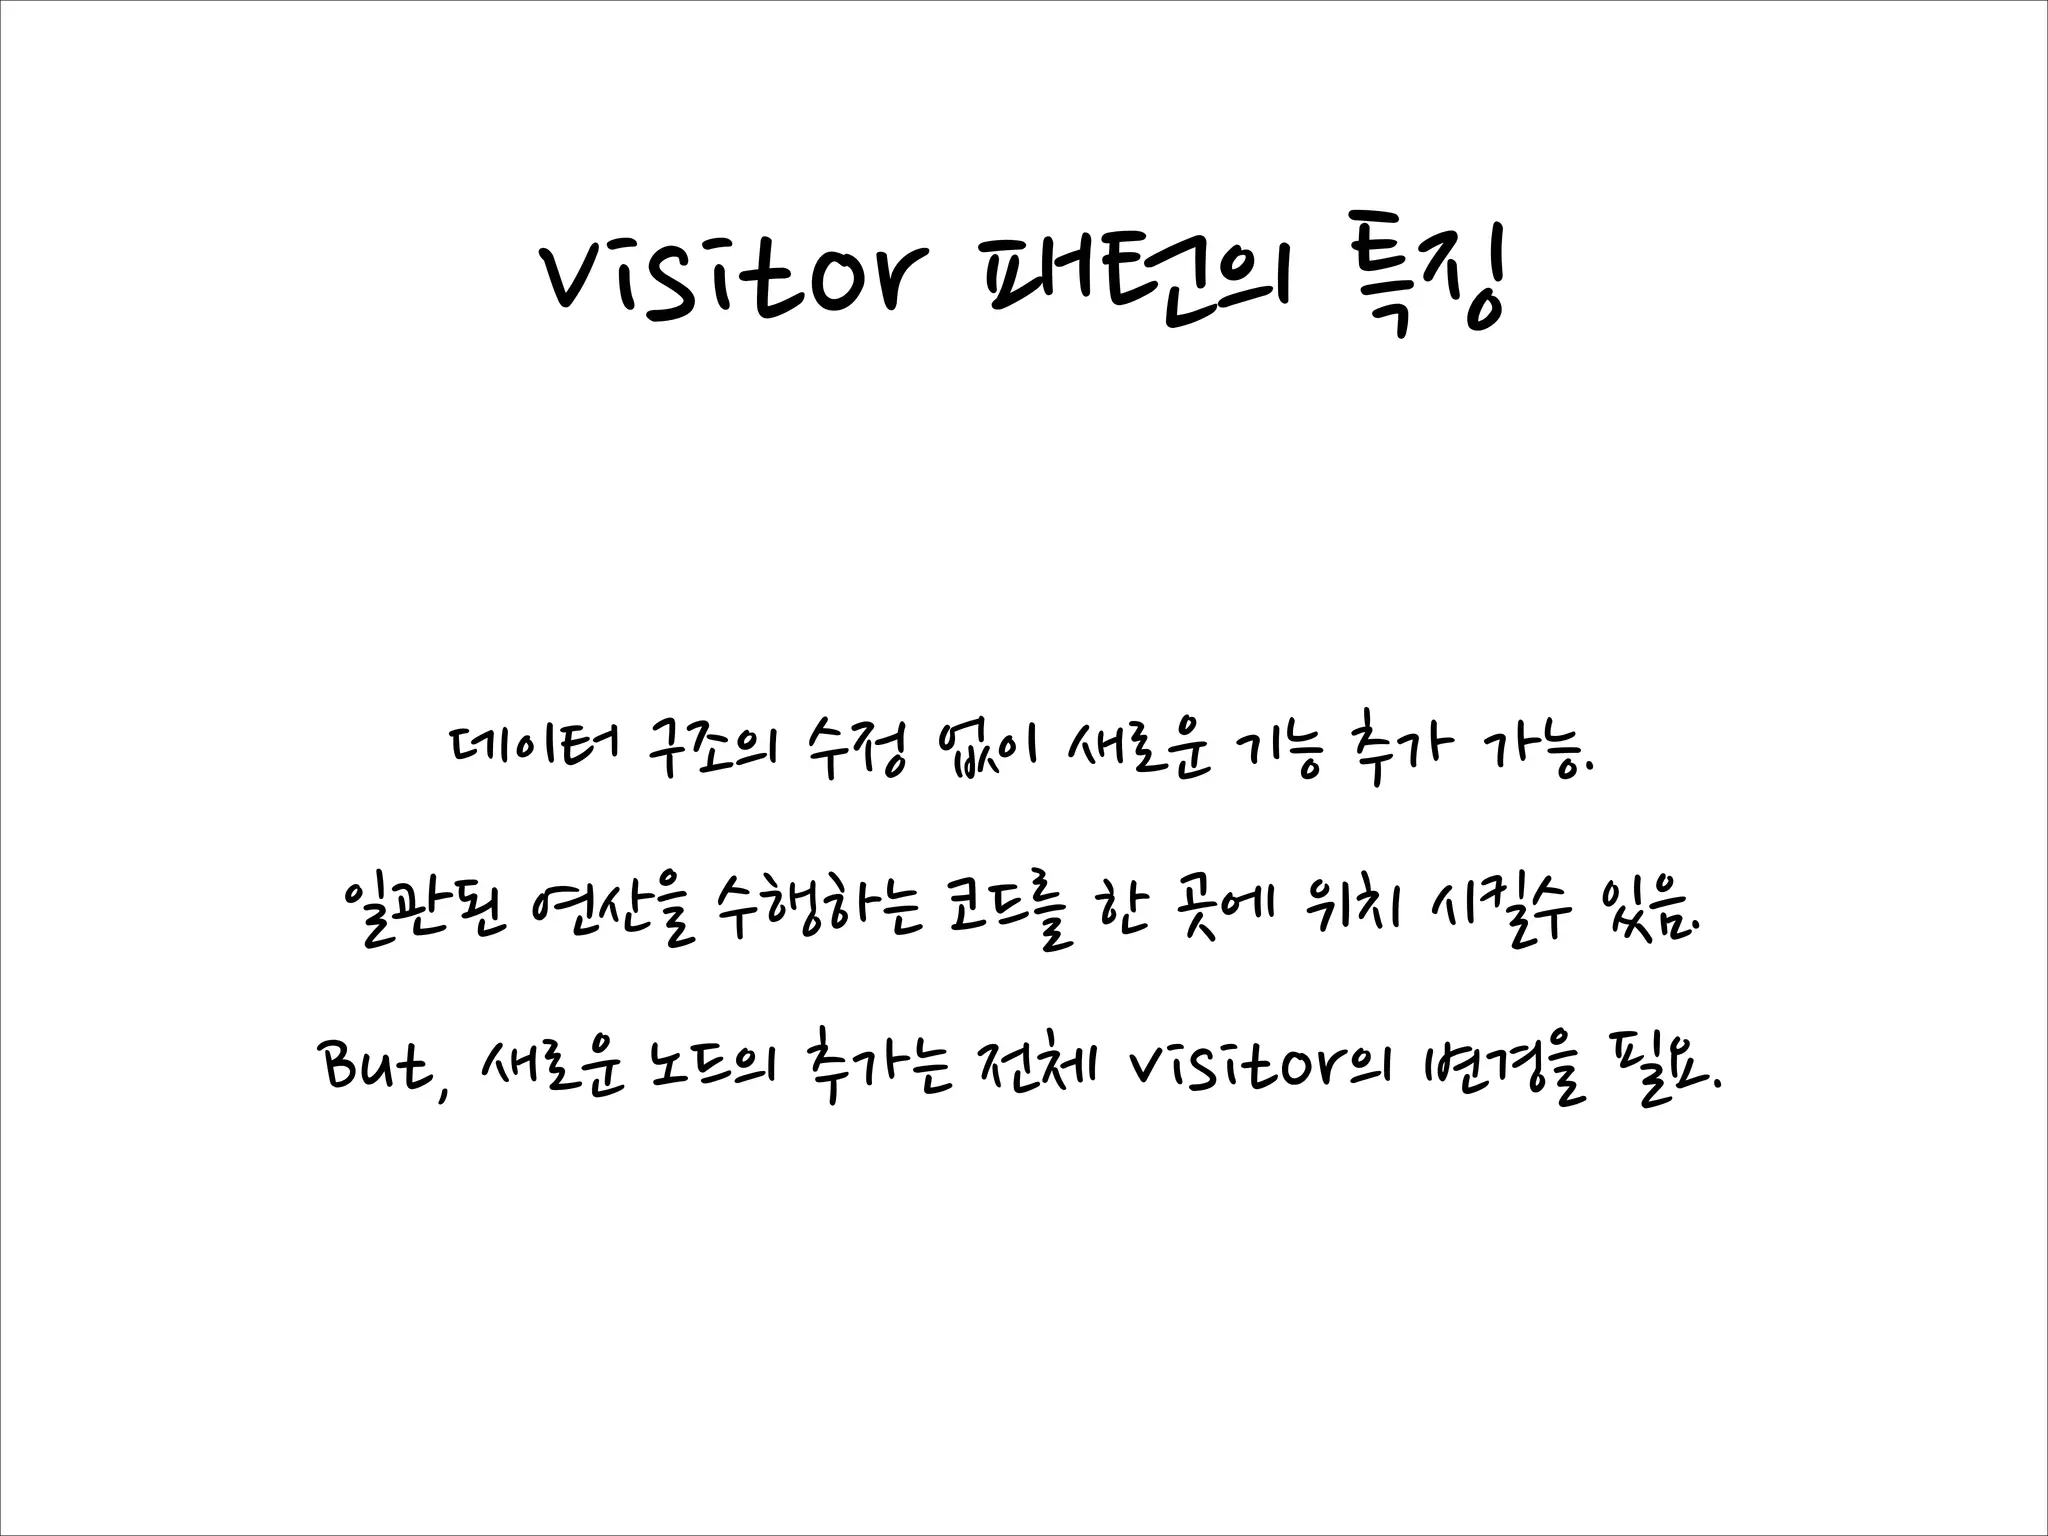 visitor 패턴의 특징
데이터 구조의 수정 없이 새로운 기능 추가 가능.
일관된 연산을 수행하는 코드를 한 곳에 위치 시킬수 있음.
But, 새로운 노드의 추가는 전체 visitor의 변경을 필요.